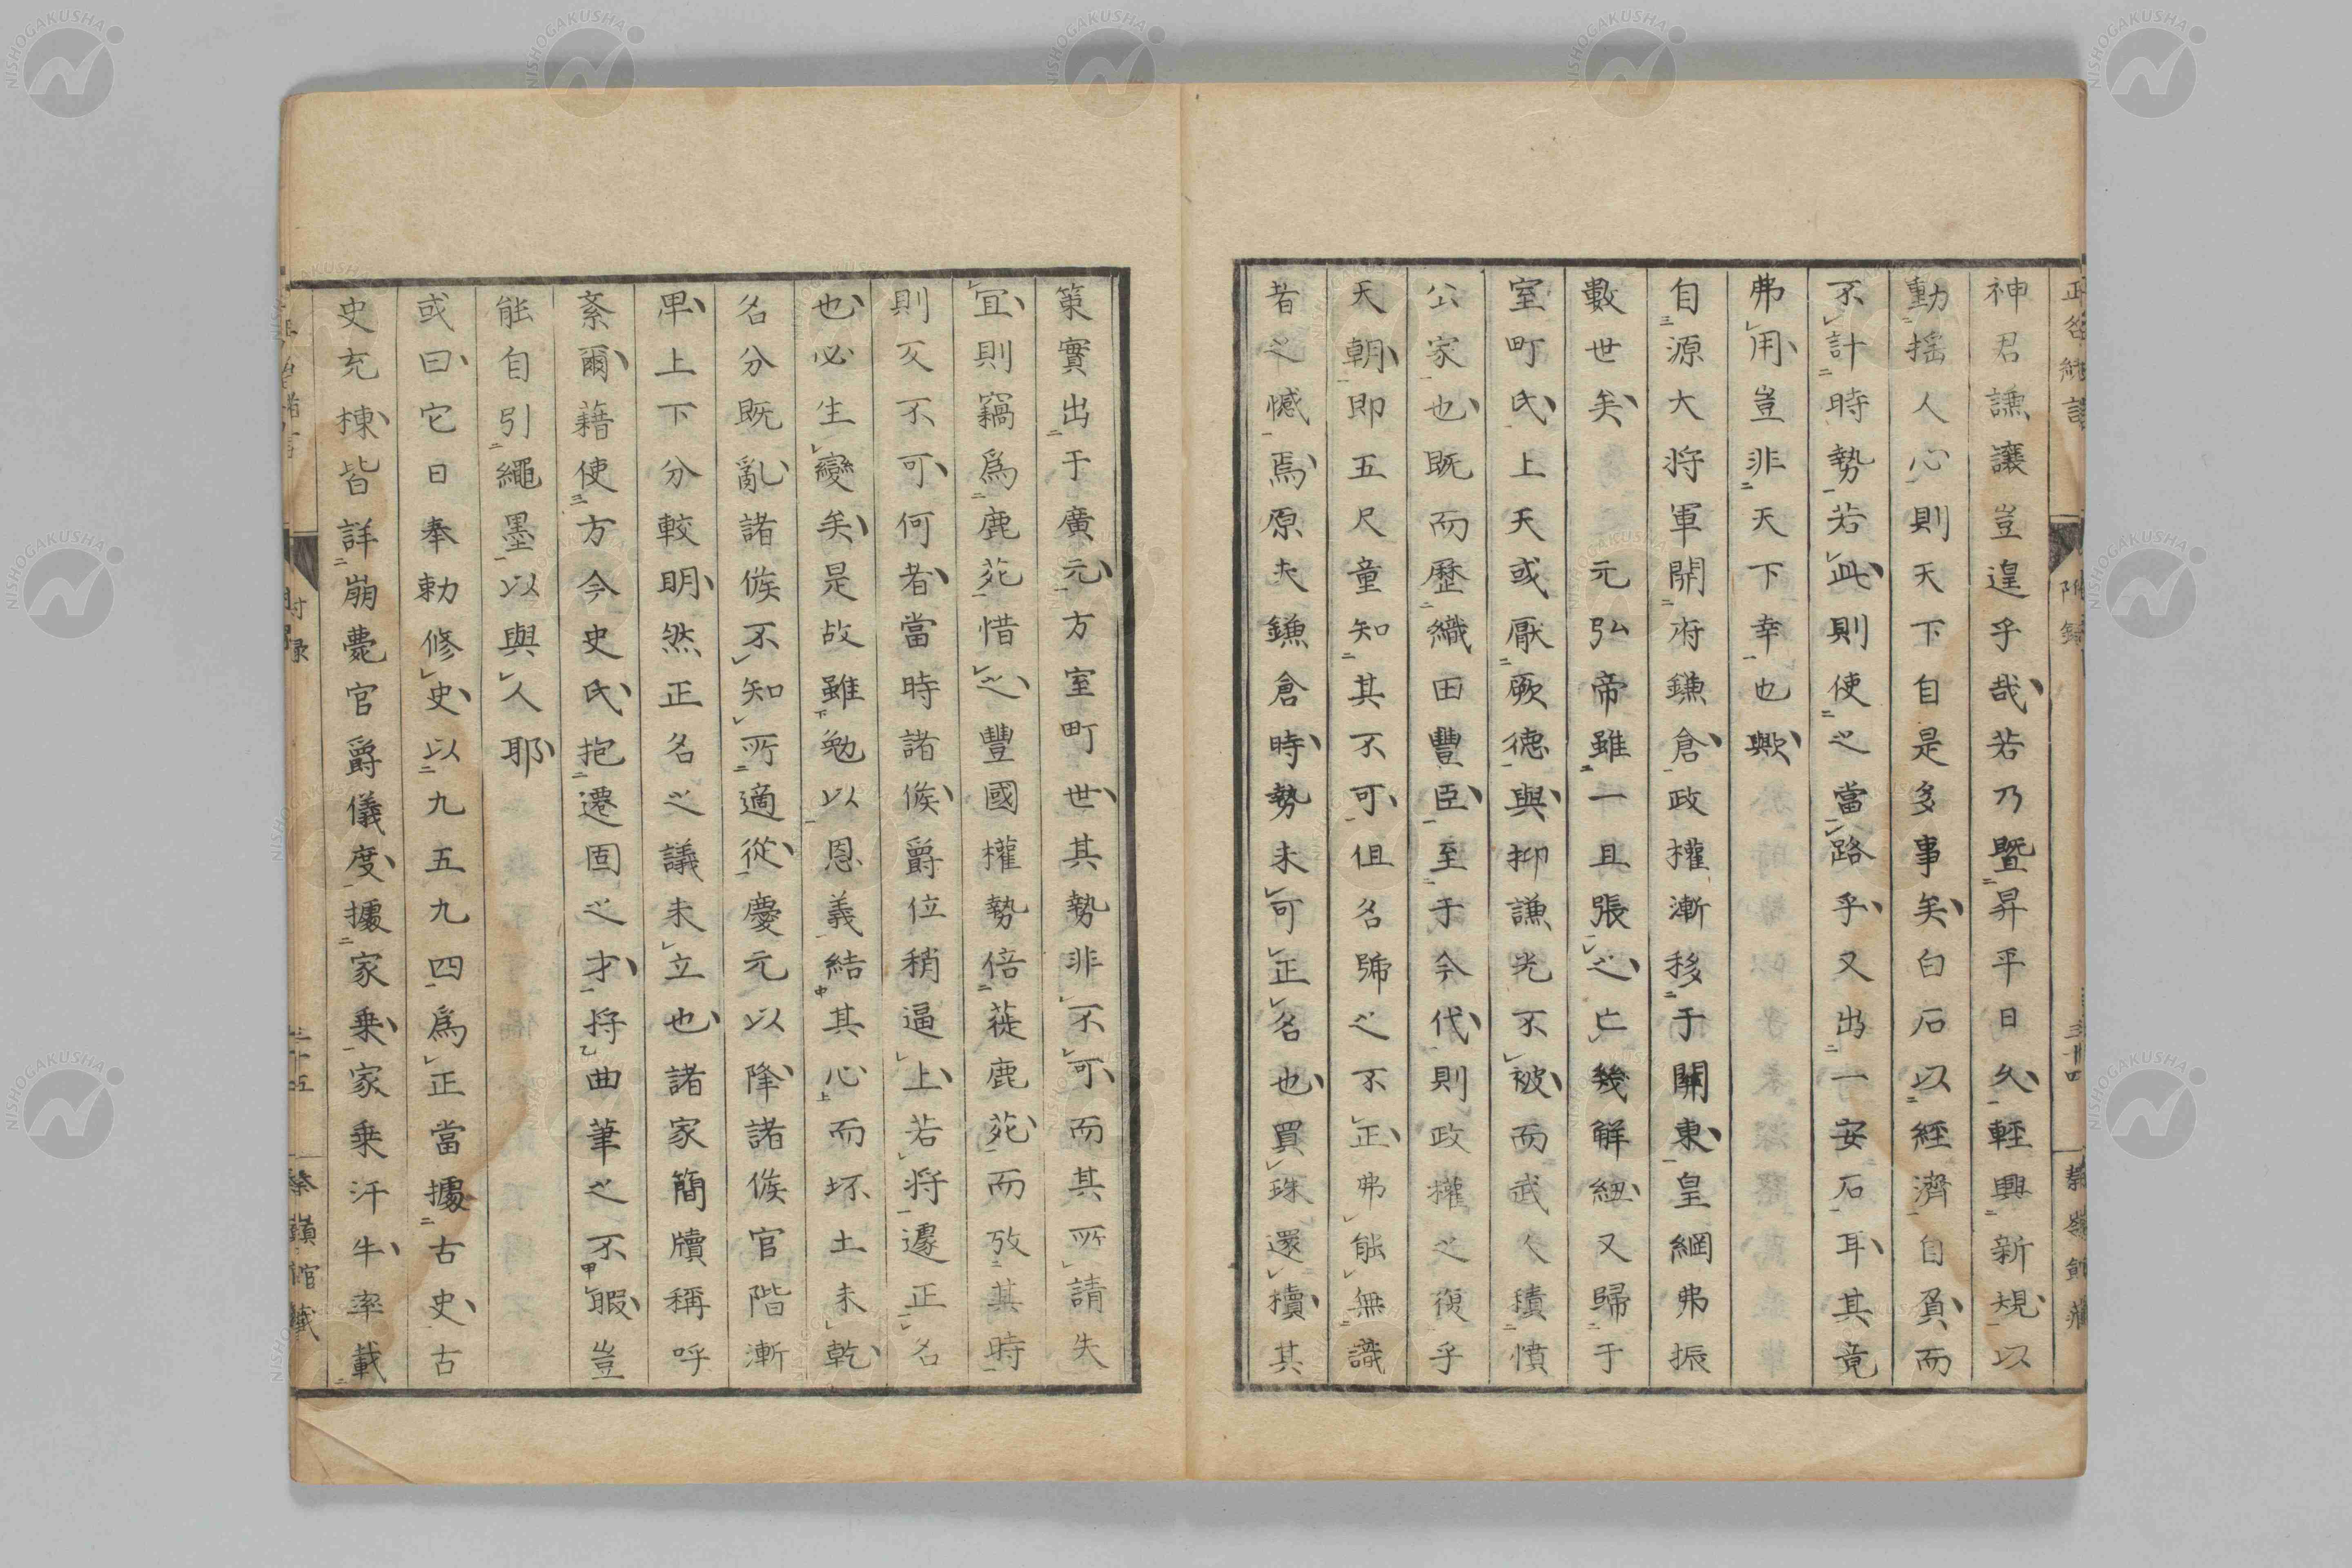 神君謙讓豈遑乎哉若乃曁昇平日久輕興新規以
動揺人心則天下自是多事矣白石以經濟自負而
不計時勢若此則使之當路乎又出一安石耳其竟
弗用豈非天下幸也歟
自源大将軍開府鎌倉政權漸移于關東皇綱弗振
數世矣　元弘帝雖一旦張之亡幾解紐又歸于
室町氏上天或厭厥德與抑謙光不被而武人積憤
公家也既而歷織田豐臣至于今代則政權之復乎
天朝即五尺童知其不可但名號之不正弗能無識
者之憾焉原夫鎌倉時勢未可正名也買珠還櫝其
策實出于廣元方室町世其勢非不可而其所請失
宜則竊爲鹿苑惜之豐國權勢倍蓰鹿苑而攷其時
則又不可何者當時諸侯爵位稍逼上若将遽正名
也必生變矣是故雖勉以恩義結其心而坏土未乾
名分既亂諸侯不知所適從慶元以降諸侯官階漸
卑上下分較明然正名之議未立也諸家簡牘稱呼
紊爾藉使方今史氏抱遷固之才将曲筆之不暇豈
能自引繩墨以與人耶
或曰它日奉勅修史以九五九四爲正當據古史古
史充棟皆詳崩薨官爵儀度據家乗家乗汗牛率載
附録
三十四
三十五
NISHOGAKUSHA